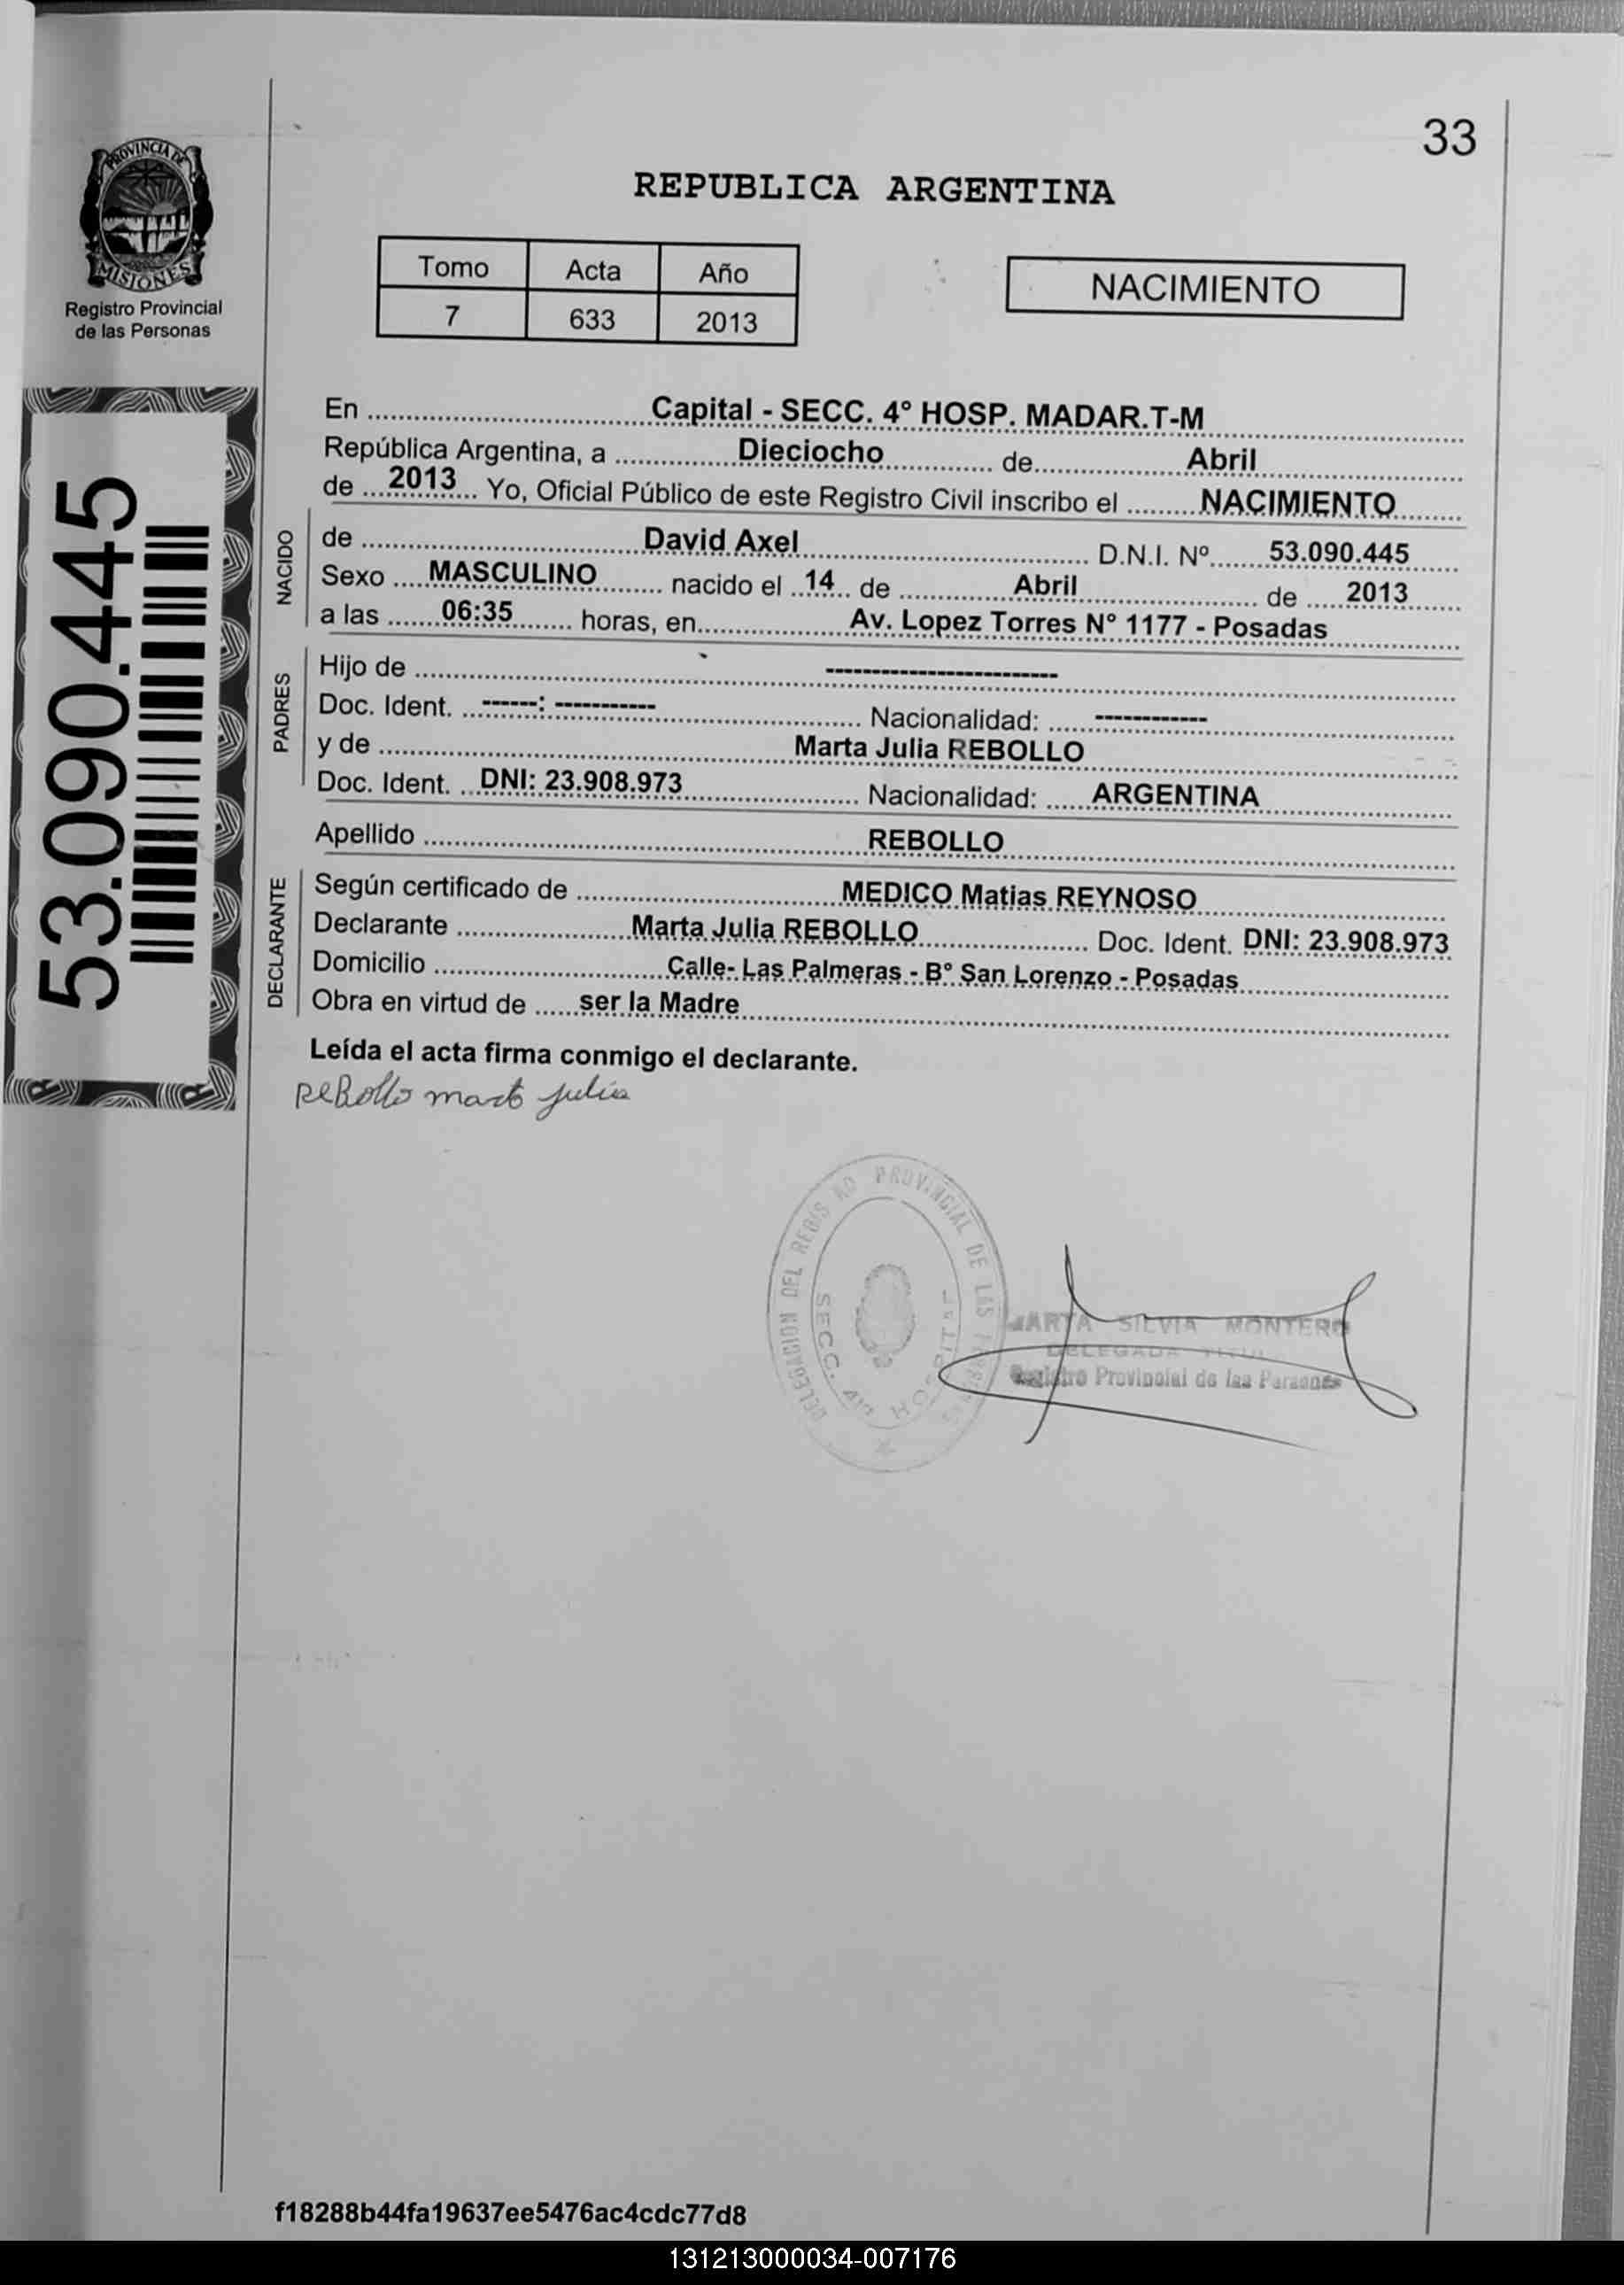 33
REPUBLICA ARGENTINA
PROVINCIA DE
MISIONES
Registro Provincial
de las Personas
Tomo Acta Año
7 633 2013
NACIMIENTO
53.090.445
En Capital - SECC. 4° HOSP. MADAR.T-M
República Argentina, a Dieciocho de Abril
de 2013 Yo, Oficial Público de este Registro Civil inscribo el NACIMIENTO
NACIDO
de David Axel D.N.I. Nº 53.090.445
Sexo MASCULINO nacido el 14 de Abril de 2013
a las 06:35 horas, en Av. Lopez Torres N° 1177 - Posadas
PADRES
Hijo de -------------------------
Doc. Ident. ------: ----------- Nacionalidad: ------------
y de Marta Julia REBOLLO
Doc. Ident. DNI: 23.908.973 Nacionalidad: ARGENTINA
Apellido REBOLLO
DECLARANTE
Según certificado de MEDICO Matias REYNOSO
Declarante Marta Julia REBOLLO Doc. Ident. DNI: 23.908.973
Domicilio Calle- Las Palmeras - B° San Lorenzo - Posadas
Obra en virtud de ser la Madre
Leída el acta firma conmigo el declarante.
ReBollo marta Julia
DELEGACION DEL REGISTRO PROVINCIAL DE LAS
SECC. 4ta HOSPITAL
MARTA SILVIA MONTERO
DELEGADA
Registro Provincial de las Personas
f18288b44fa19637ee5476ac4cdc77d8
131213000034-007176